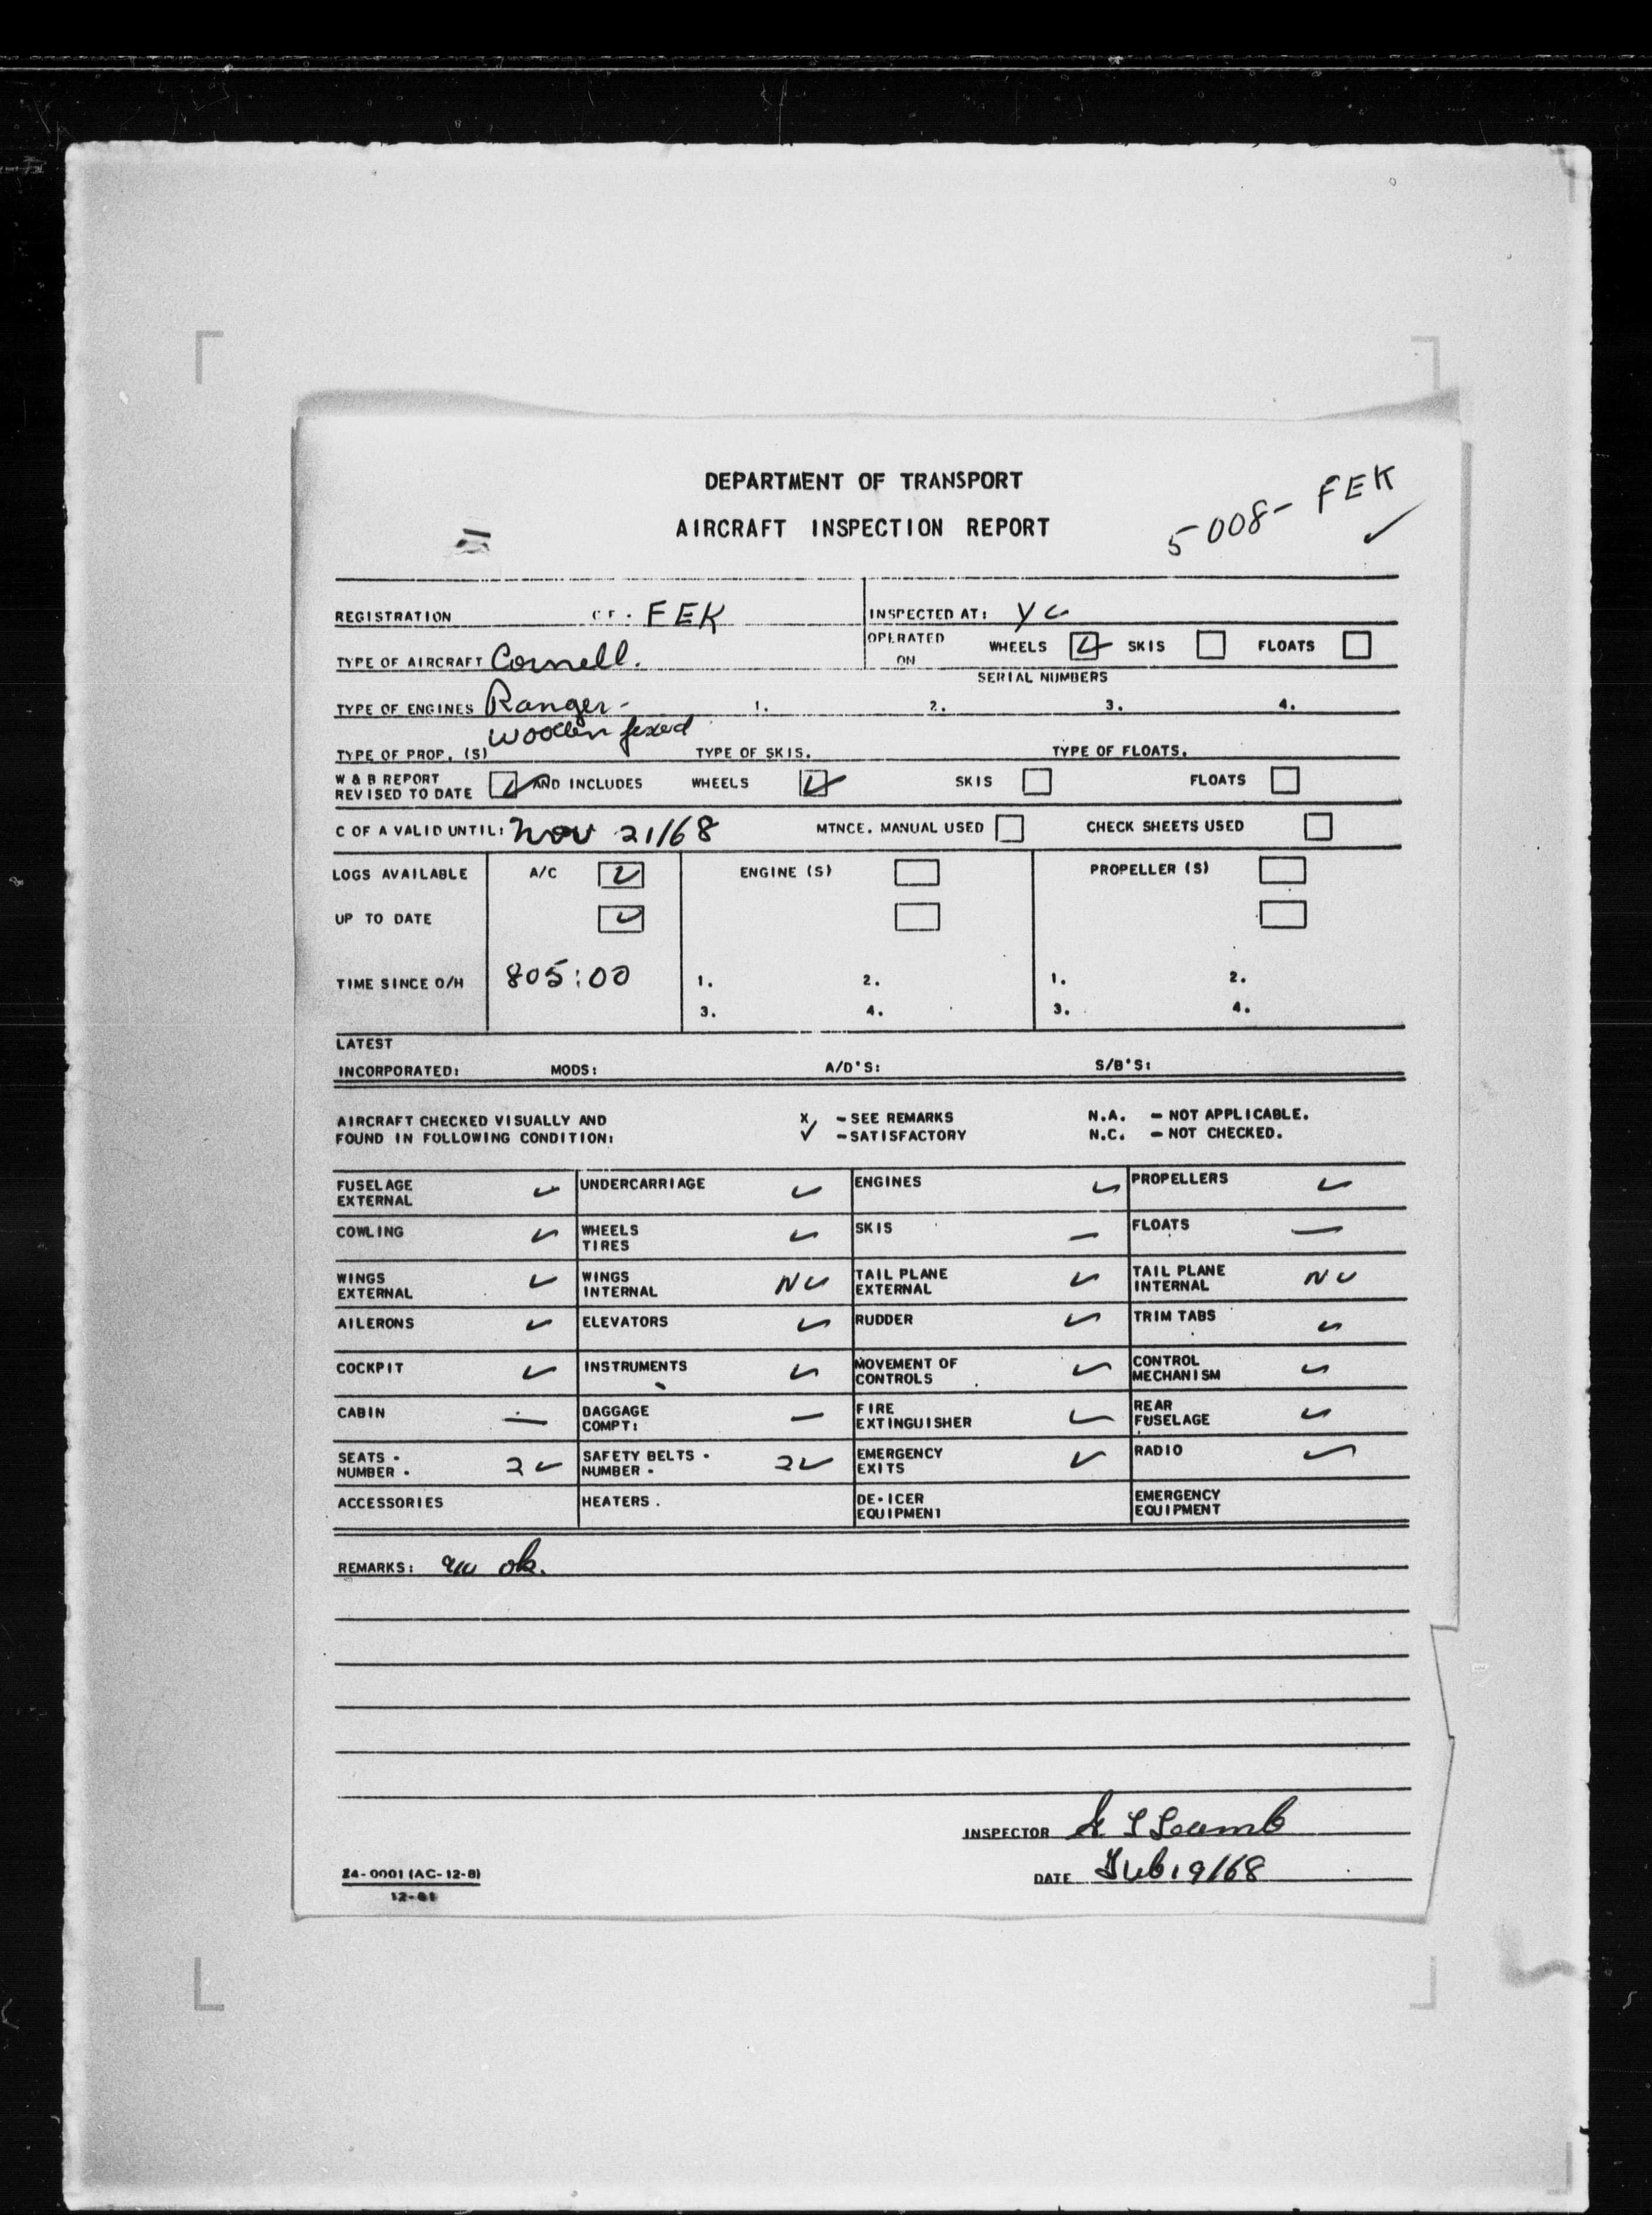 DEPARTMENT OF TRANSPORT
5008- FEK ✓
AIRCRAFT INSPECTION REPORT
REGISTRATION CF- FEK INSPECTED AT: YC
OPERATED ON WHEELS ✓ SKIS FLOATS
TYPE OF AIRCRAFT Cornell.
SERIAL NUMBERS
TYPE OF ENGINES Ranger - 1. 2. 3. 4.
TYPE OF PROP. (S) Wooden fixed TYPE OF SKIS. TYPE OF FLOATS.
W & B REPORT
REVISED TO DATE ✓ AND INCLUDES WHEELS ✓ SKIS FLOATS
C OF A VALID UNTIL: Nov 21/68 MTNCE. MANUAL USED CHECK SHEETS USED
LOGS AVAILABLE A/C ✓ ENGINE (S) PROPELLER (S)
UP TO DATE ✓
TIME SINCE O/H 805:00 1. 2. 1. 2.
3. 4. 3. 4.
LATEST
INCORPORATED: MODS: A/D'S: S/B'S:
AIRCRAFT CHECKED VISUALLY AND X - SEE REMARKS N.A. - NOT APPLICABLE.
FOUND IN FOLLOWING CONDITION: ✓ - SATISFACTORY N.C. - NOT CHECKED.
FUSELAGE EXTERNAL ✓ UNDERCARRIAGE ✓ ENGINES ✓ PROPELLERS ✓
COWLING ✓ WHEELS TIRES ✓ SKIS — FLOATS —
WINGS EXTERNAL ✓ WINGS INTERNAL NC TAIL PLANE EXTERNAL ✓ TAIL PLANE INTERNAL NC
AILERONS ✓ ELEVATORS ✓ RUDDER ✓ TRIM TABS ✓
COCKPIT ✓ INSTRUMENTS ✓ MOVEMENT OF CONTROLS ✓ CONTROL MECHANISM ✓
CABIN — BAGGAGE COMPT: — FIRE EXTINGUISHER ✓ REAR FUSELAGE ✓
SEATS - NUMBER - 2 ✓ SAFETY BELTS - NUMBER - 2 ✓ EMERGENCY EXITS ✓ RADIO ✓
ACCESSORIES HEATERS. DE-ICER EQUIPMENT EMERGENCY EQUIPMENT
REMARKS: ok.
INSPECTOR Lamb
DATE Feb 19/68
24-0001 (AC-12-8)
12-61